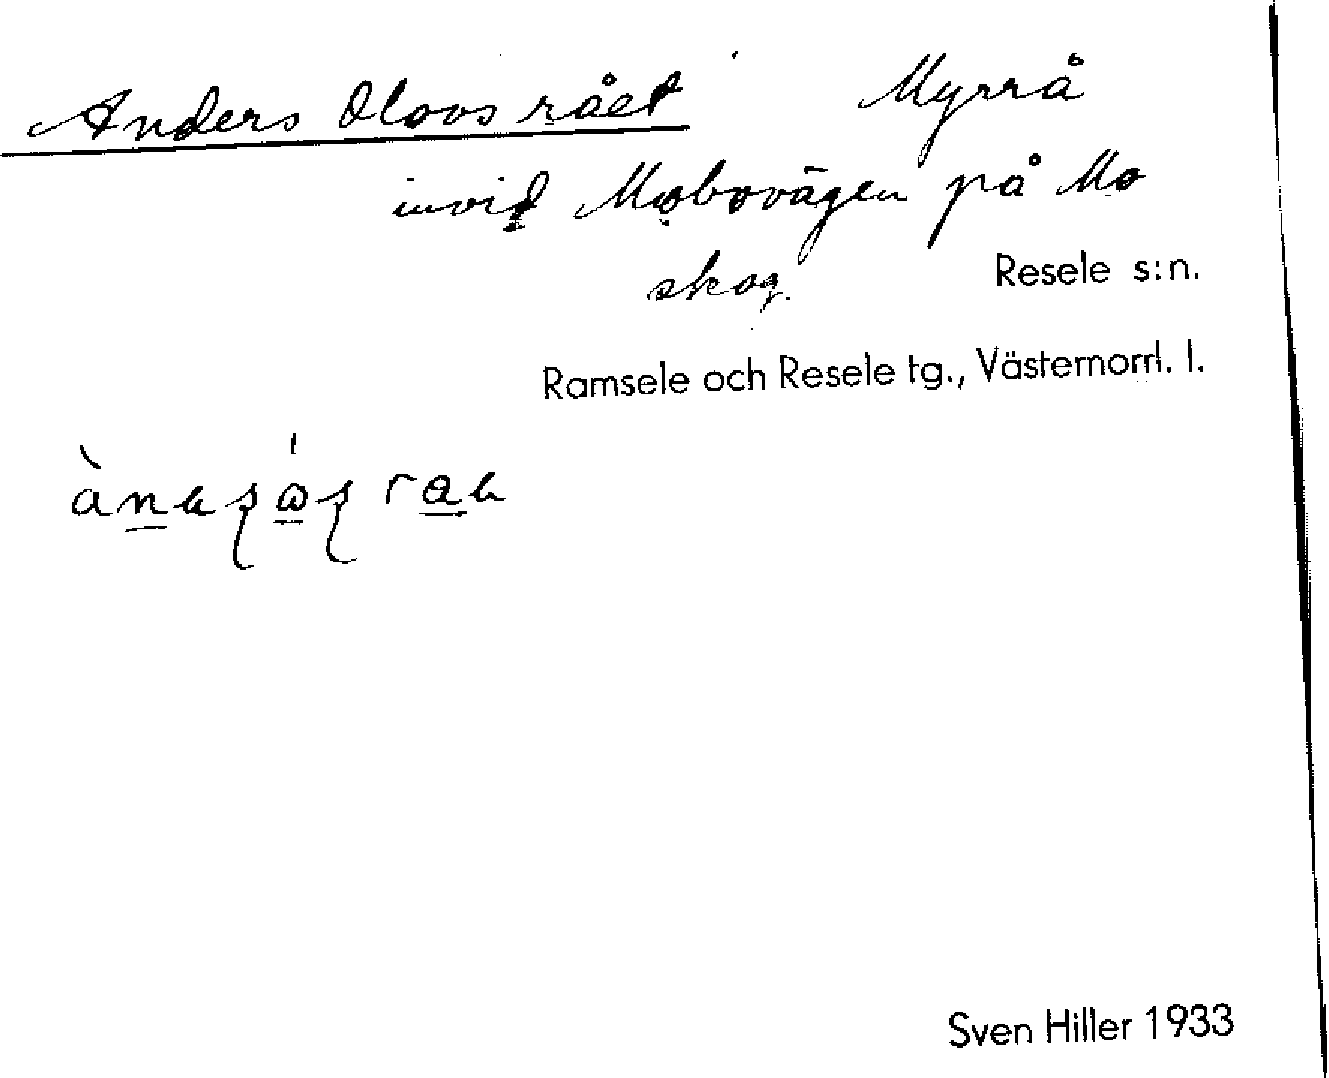 Anders Olovs rået Myrrå
invid Mobovägen på Mo
skog.
Resele s:n.
Ramsele och Resele tg., Västernorrl. l.
Sven Hiller 1933